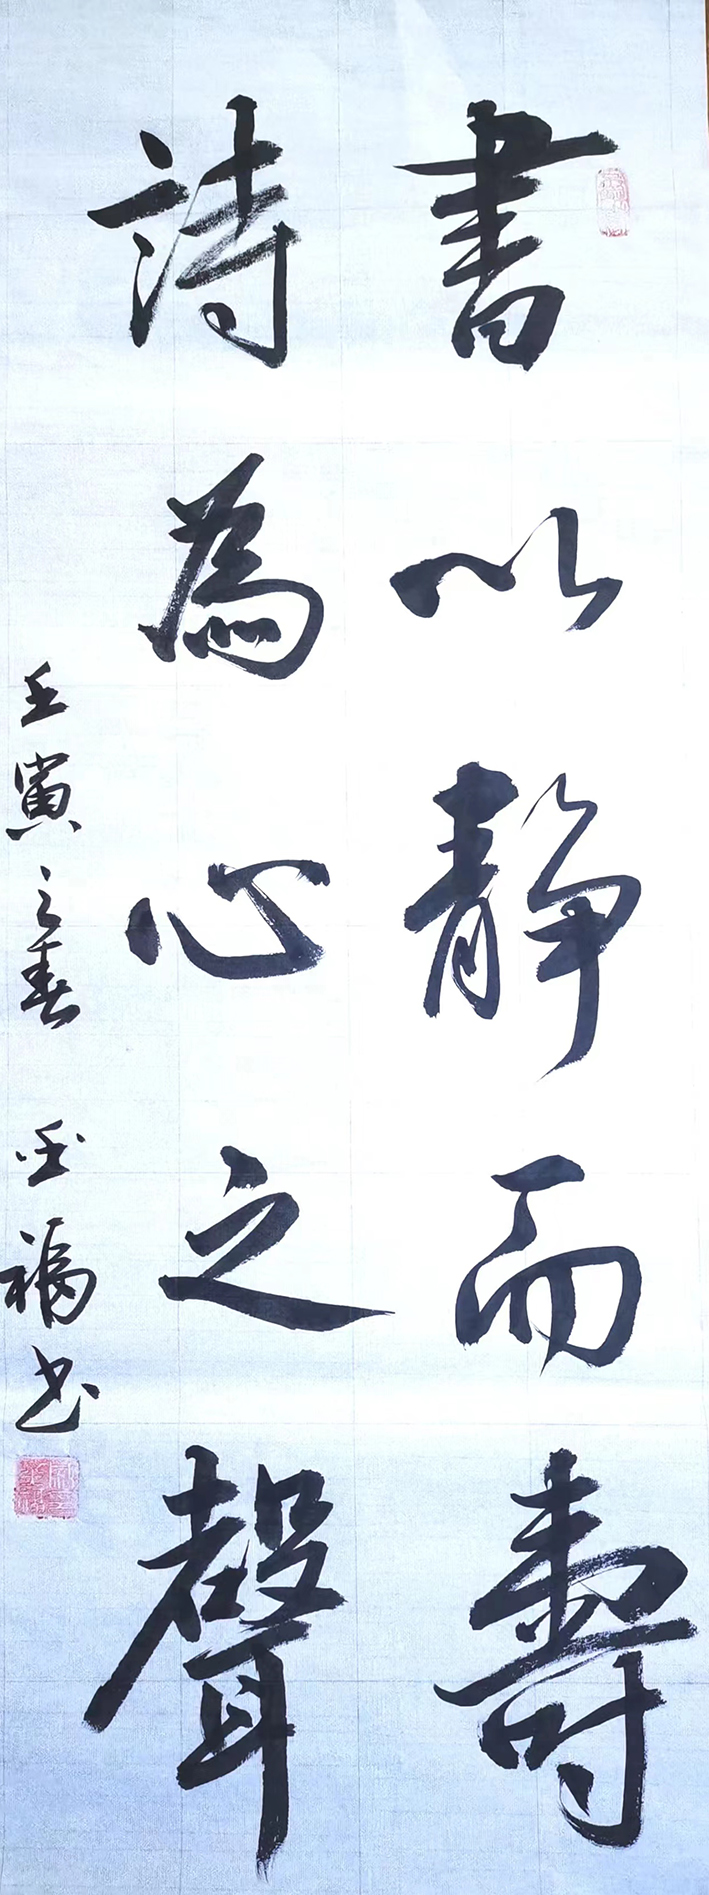 書以靜而壽
詩為心之聲
壬寅之春 福书